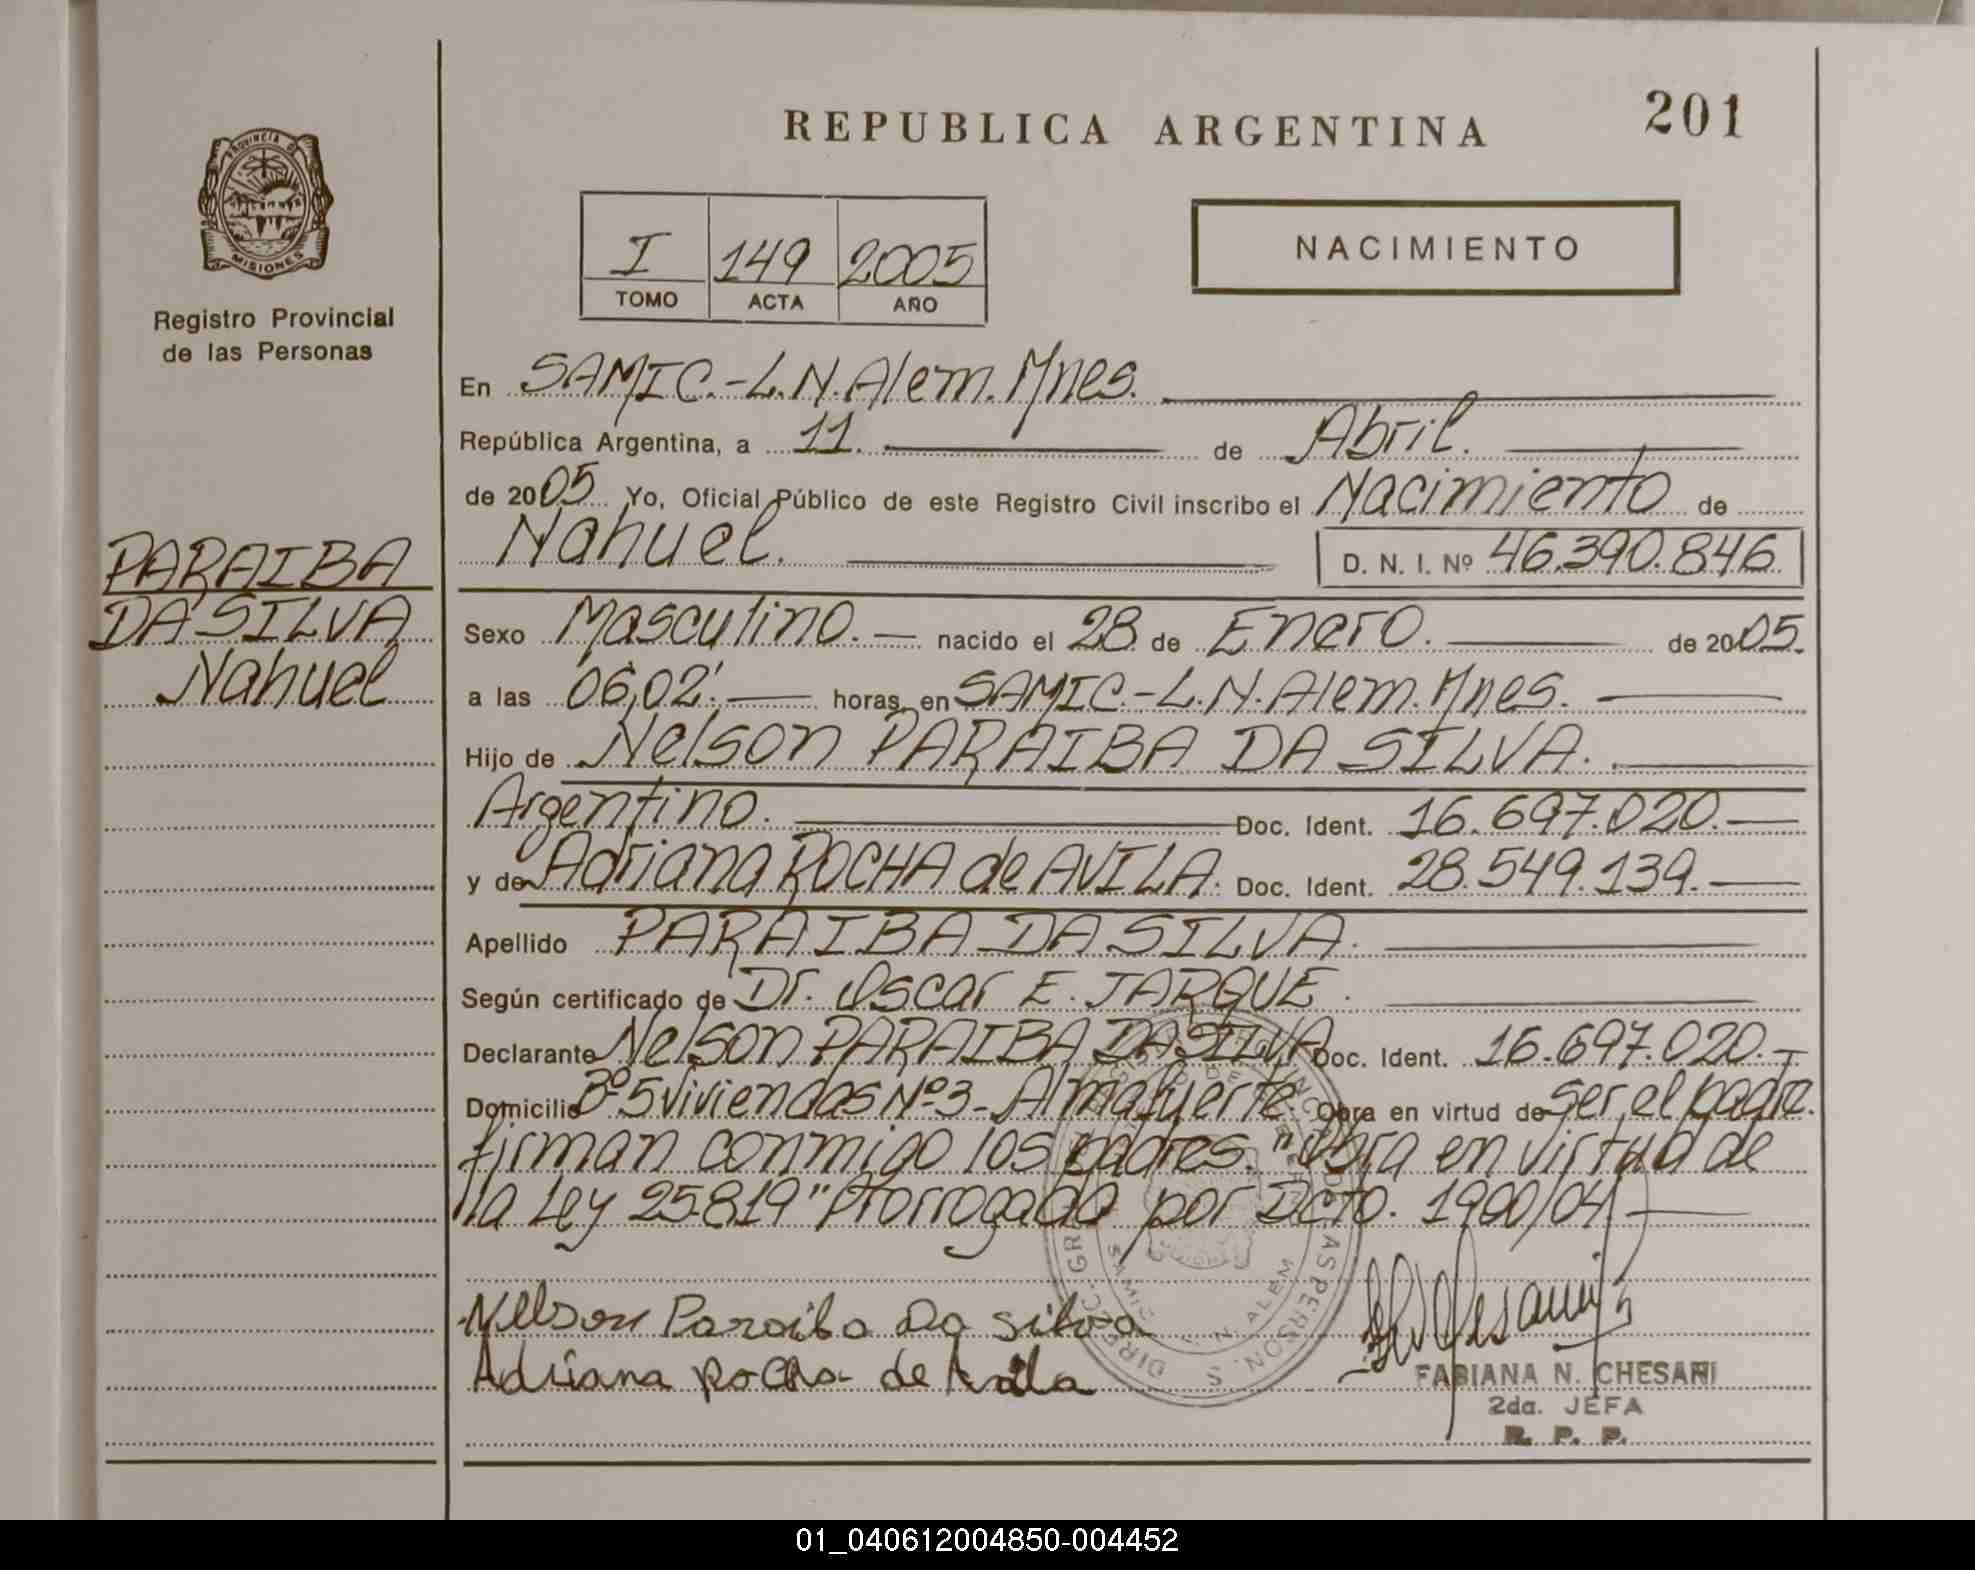 REPUBLICA ARGENTINA
201
PROVINCIA DE
MISIONES
Registro Provincial
de las Personas
I 149 2005
TOMO ACTA AÑO
NACIMIENTO
En SAMIC.-L.N.Alem.Mnes.
República Argentina, a 11. de Abril.
de 2005 Yo, Oficial Público de este Registro Civil inscribo el Nacimiento de
Nahuel. D. N. I. Nº 46.390.846
PARAIBA
DA SILVA
Nahuel
Sexo Masculino.- nacido el 28 de Enero. de 2005.
a las 06,02'. horas, en SAMIC.-L.N.Alem.Mnes.
Hijo de Nelson PARAIBA DA SILVA.
Argentino. Doc. Ident. 16.697.020.-
y de Adriana ROCHA de AVILA. Doc. Ident. 28.549.139.-
Apellido PARAIBA DA SILVA.
Según certificado de Dr. Oscar E. JARQUE.
Declarante Nelson PARAIBA DA SILVA Doc. Ident. 16.697.020.-
Domicilio Bº 5 viviendas Nº3-Almafuerte. Obra en virtud de ser el padre.
firman conmigo los padres. "Obra en virtud de
la Ley 25.819" Prorrogado por Dcto. 1900/04
Nelson Paraiba Da Silva
Adriana Rocha de Avila
SAMIC L. N. ALEM
FABIANA N. CHESANI
2da. JEFA
R. P. P.
01_040612004850-004452